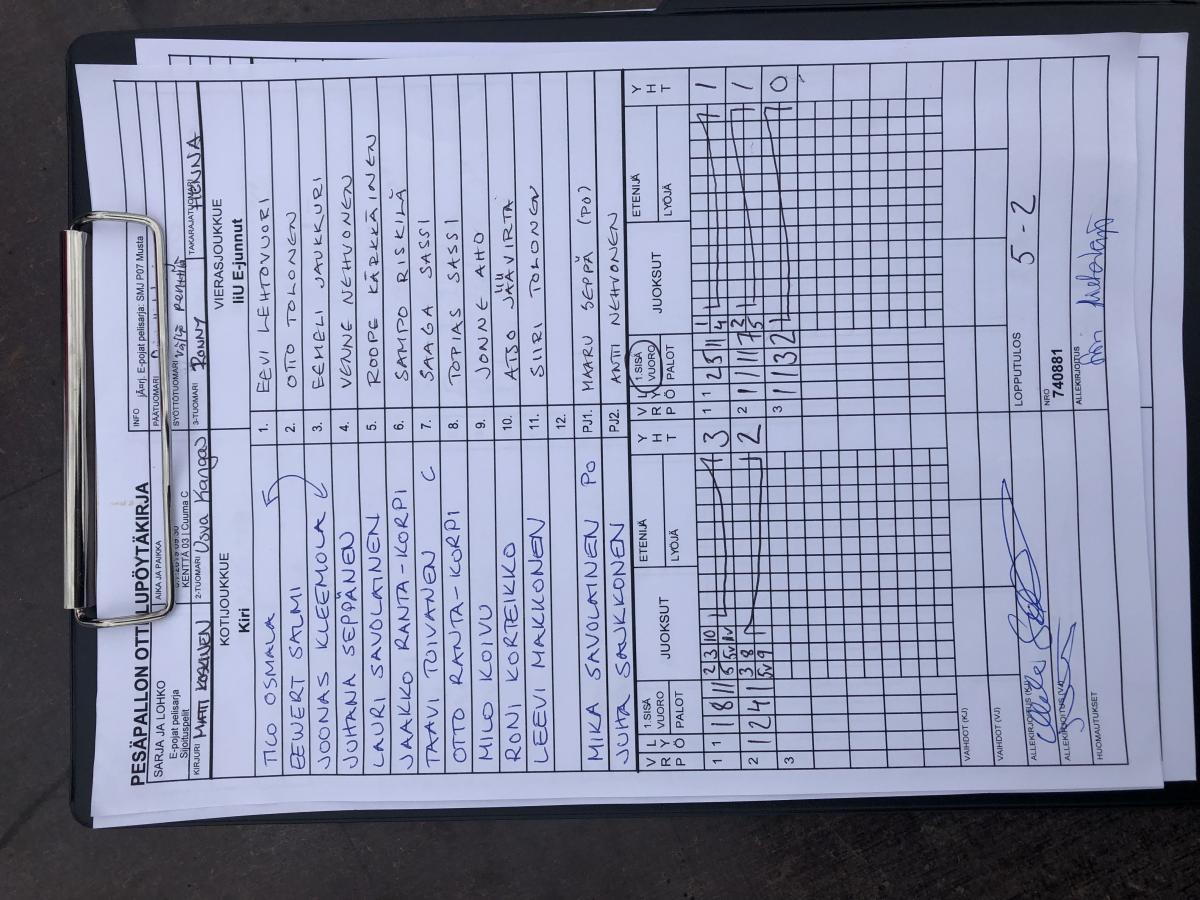 PESÄPALLON OTTELUPÖYTÄKIRJA
SARJA JA LOHKO
E-pojat pelisarja
Sijoituspelit
AIKA JA PAIKKA
KENTTÄ 03 | Cuuma C
INFO
E-pojat pelisarja: SMJ P07 Musta
PÄÄTUOMARI
SYÖTTÖTUOMARI
KIRJURI MATTI KOSKINEN
2-TUOMARI Kangas
3-TUOMARI RONNY
TAKARAJATUOMARI HENNA
KOTIJOUKKUE
Kiri
VIERASJOUKKUE
IiU E-junnut
TICO OSMALA 1. EEVI LEHTOVUORI
EEWERT SALMI 2. OTTO TOLONEN
JOONAS KLEEMOLA 3. EEMELI JAUKKURI
JUHANA SEPPÄNEN 4. VENNE NEHVONEN
LAURI SAVOLAINEN 5. ROOPE KÄRKKÄINEN
JAAKKO RANTA-KORPI 6. SAMPO RISKILÄ
TAAVI TOIVANEN C 7. SAAGA SASSI
OTTO RANTA-KORPI 8. TOPIAS SASSI
MILO KOIVU 9. JONNE AHO
RONI KORTEIKKO 10. ATSO
LEEVI MAKKONEN 11. SIIRI TOLONEN
12.
MIKA SAVOLAINEN PO PJ1. MAARU SEPPÄ (PO)
JUHA SAUKKONEN PJ2. ANTTI NEHVONEN
V R P L Y Ö 1.SISÄ VUORO PALOT JUOKSUT ETENIJÄ LYÖJÄ Y H T
V R P L Y Ö 1.SISÄ VUORO PALOT JUOKSUT ETENIJÄ LYÖJÄ Y H T
1 1 1 8 11 2 3 10 3
1 1 2 3 11 1 4 1
2 1 2 4 1 3 8 2
2 1 1 1 1 7 2 5 1
3
3 1 1 3 2 0
VAIHDOT (KJ)
VAIHDOT (VJ)
LOPPUTULOS 5 - 2
ALLEKIRJOITUS (KJ)
NRO
740881
ALLEKIRJOITUS (VJ)
ALLEKIRJOITUS
HUOMAUTUKSET